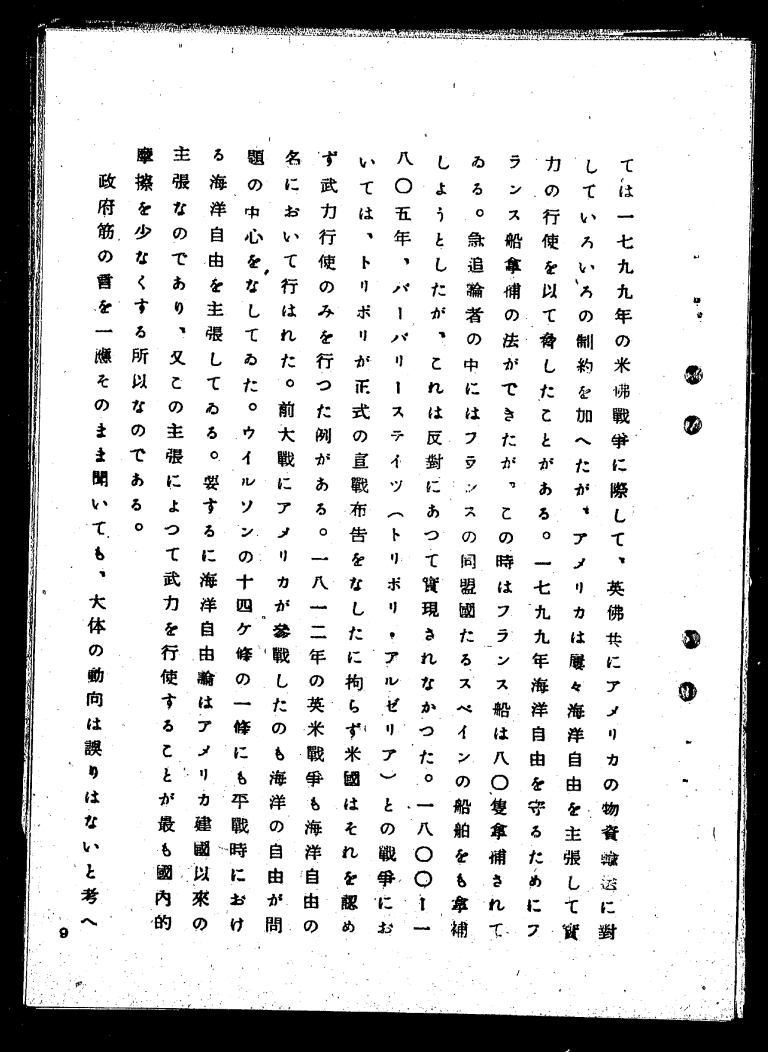 ては一七九九年の米佛戰爭に際して、英佛共にアメリカの物資輸送に對
していろいろの制約を加へたが、アメリカは屢々海洋自由を主張して實
力の行使を以て脅したことがある。一七九九年海洋自由を守るためにフ
ランス船拿捕の法ができたが、この時はフランス船は八〇隻拿捕されて
ゐる。急追論者の中にはフランスの同盟國たるスペインの船舶をも拿補
しようとしたが、これは反對にあつて實現されなかつた。一八〇〇ー一
八〇五年、バーバリーステイツ(トリポリ・アルゼリア)との戰爭にお
いては、トリポリが正式の宣戰布告をなしたに拘らず米國はそれを認め
ず武力行使のみを行つた例がある。一八一二年の英米戰爭も海洋自由の
名において行はれた。前大戰にアメリカが參戰したのも海洋の自由が問
題の中心をなしてゐた。ウイルソンの十四ケ條の一條にも平戰時におけ
る海洋自由を主張してゐる。要するに海洋自由論はアメリカ建國以來の
主張なのであり、又この主張によつて武力を行使することが最も國內的
摩擦を少なくする所以なのである。
政府筋の言を一應そのまま聞いても、大体の動向は誤りはないと考へ
9